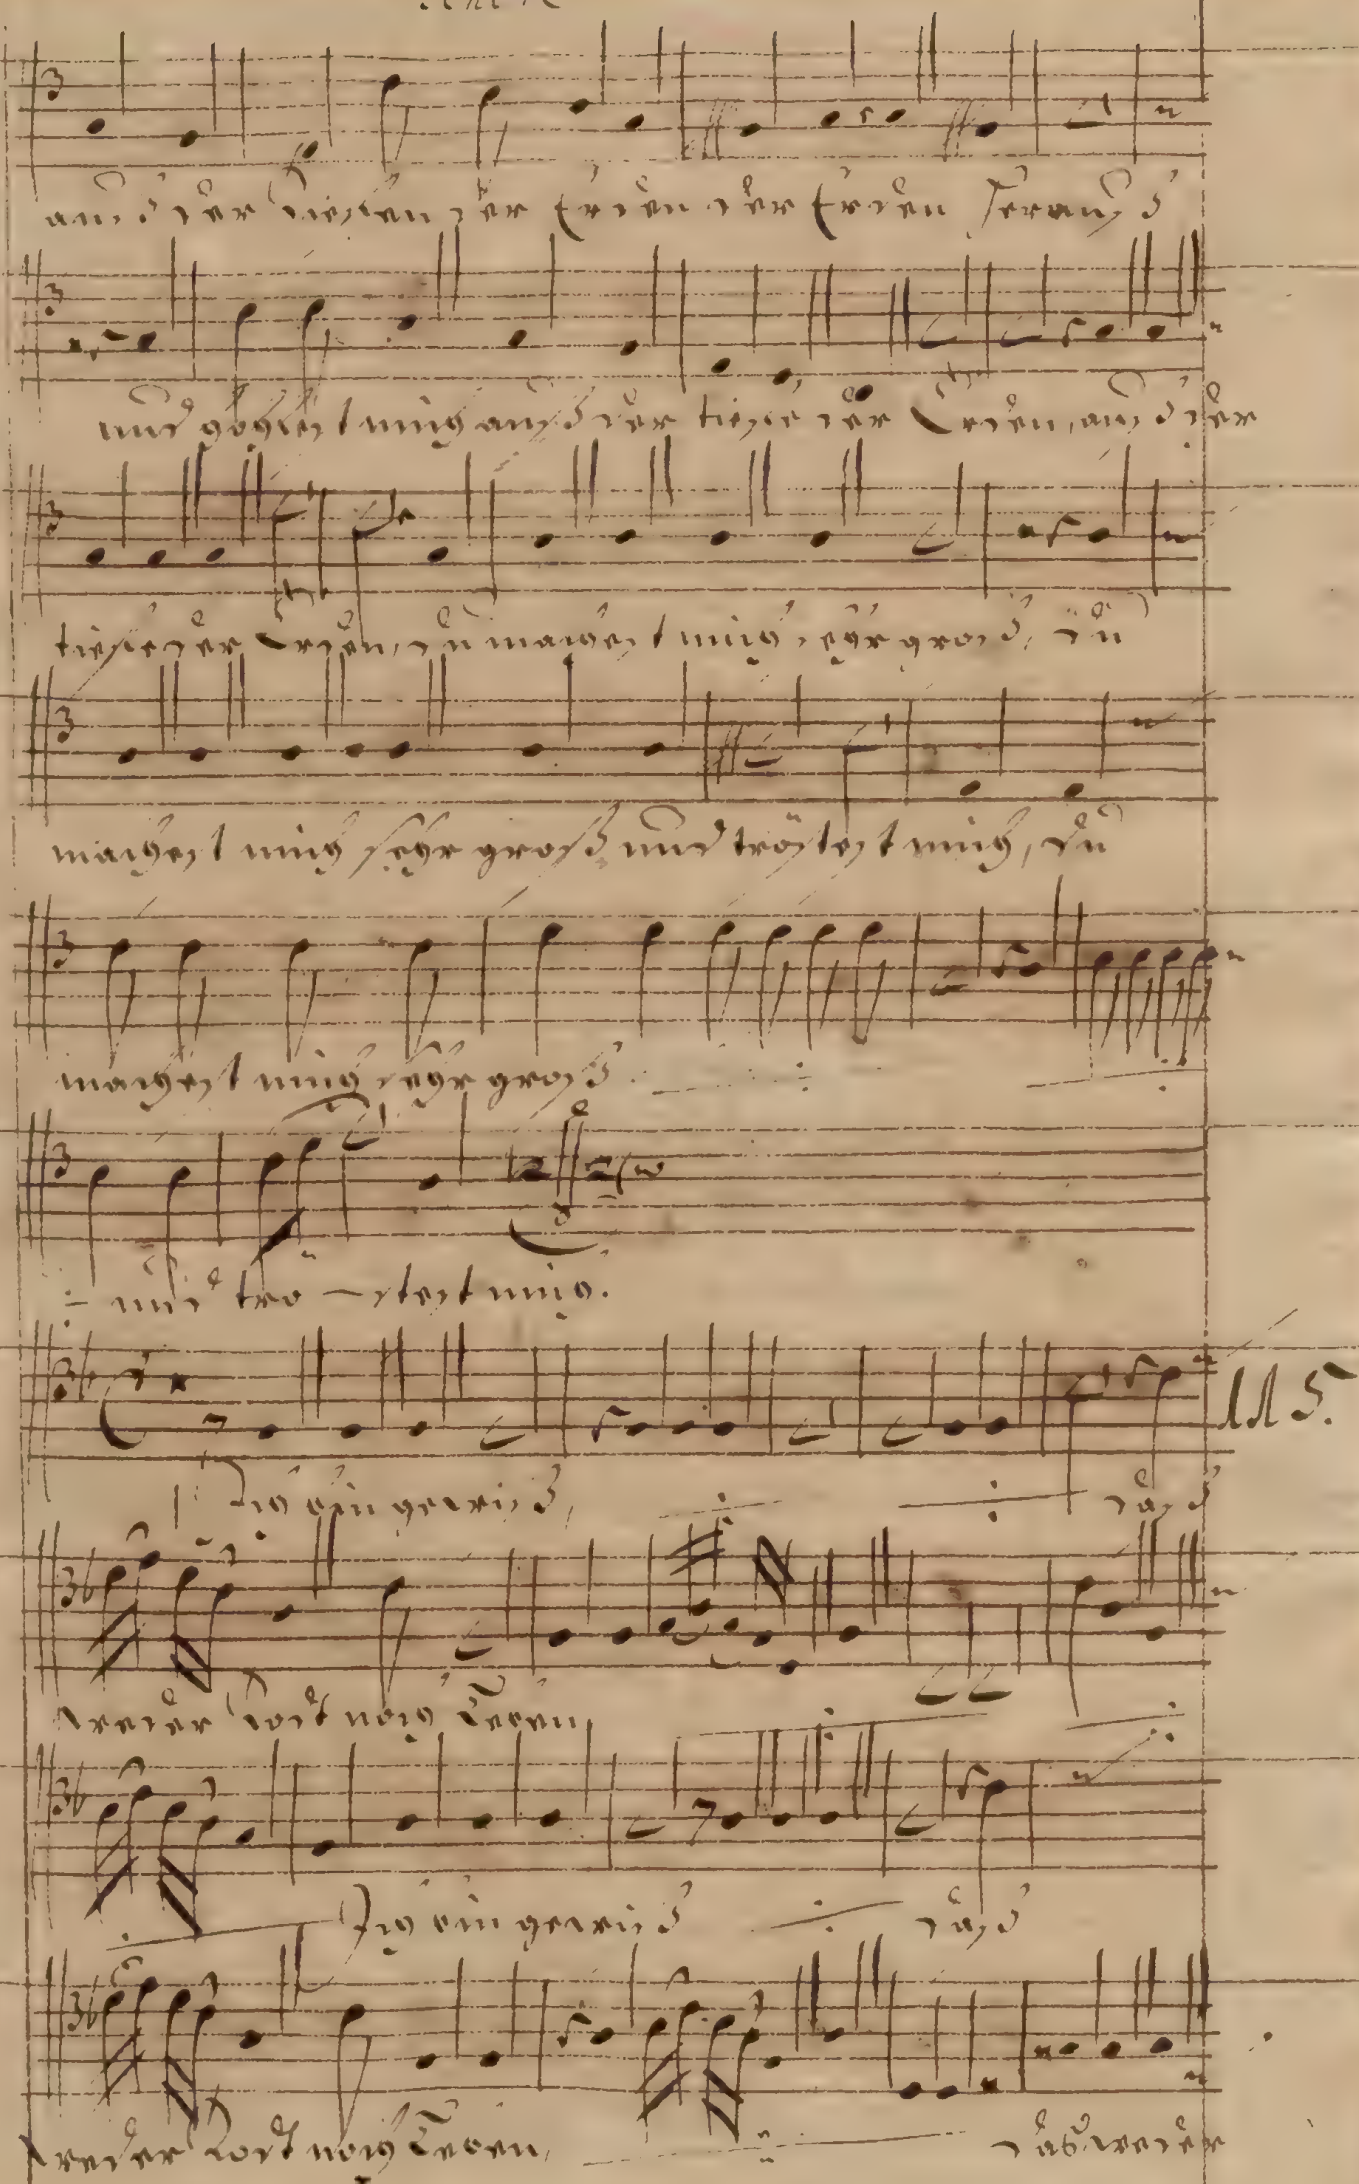 auß der Tieffen der Erden der Erden herauß
und holest mich auß der tieffe der Erden, auß der
tieffe der Erden, du machest mich sehr groß, du
machest mich sehr groß und tröstest mich, du
machest mich sehr groß
und trö-stest mich.
115.
Ich bin gewiß, daß
weder Todt noch Leben,
Ich bin gewiß daß
weder Todt noch Leben, daß weder